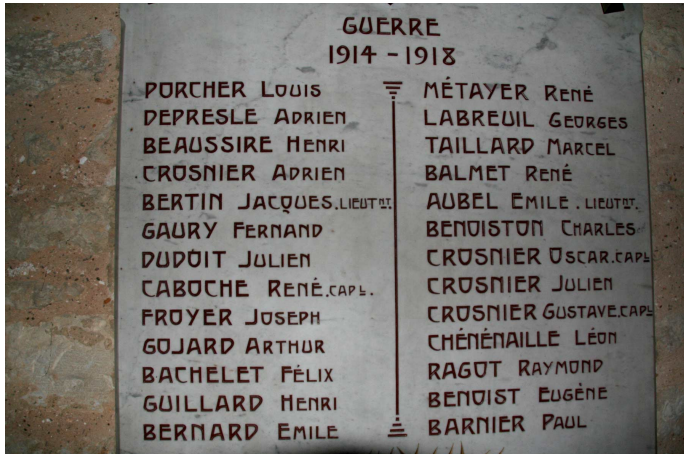 GUERRE
1914 - 1918
PORCHER LOUIS
DEPRESLE ADRIEN
BEAUSSIRE HENRI
CROSNIER ADRIEN
BERTIN JACQUES.LIEUTNT.
GAURY FERNAND
DUDOIT JULIEN
CABOCHE RENÉ.CAPL.
FROYER JOSEPH
GOJARD ARTHUR
BACHELET FÉLIX
GUILLARD HENRI
BERNARD EMILE
MÉTAYER RENÉ
LABREUIL GEORGES
TAILLARD MARCEL
BALMET RENÉ
AUBEL EMILE.LIEUTNT.
BENOISTON CHARLES
CROSNIER OSCAR.CAPL
CROSNIER JULIEN
CROSNIER GUSTAVE.CAPL
CHÉNÉNAILLE LÉON
RAGOT RAYMOND
BENOIST EUGÈNE
BARNIER PAUL